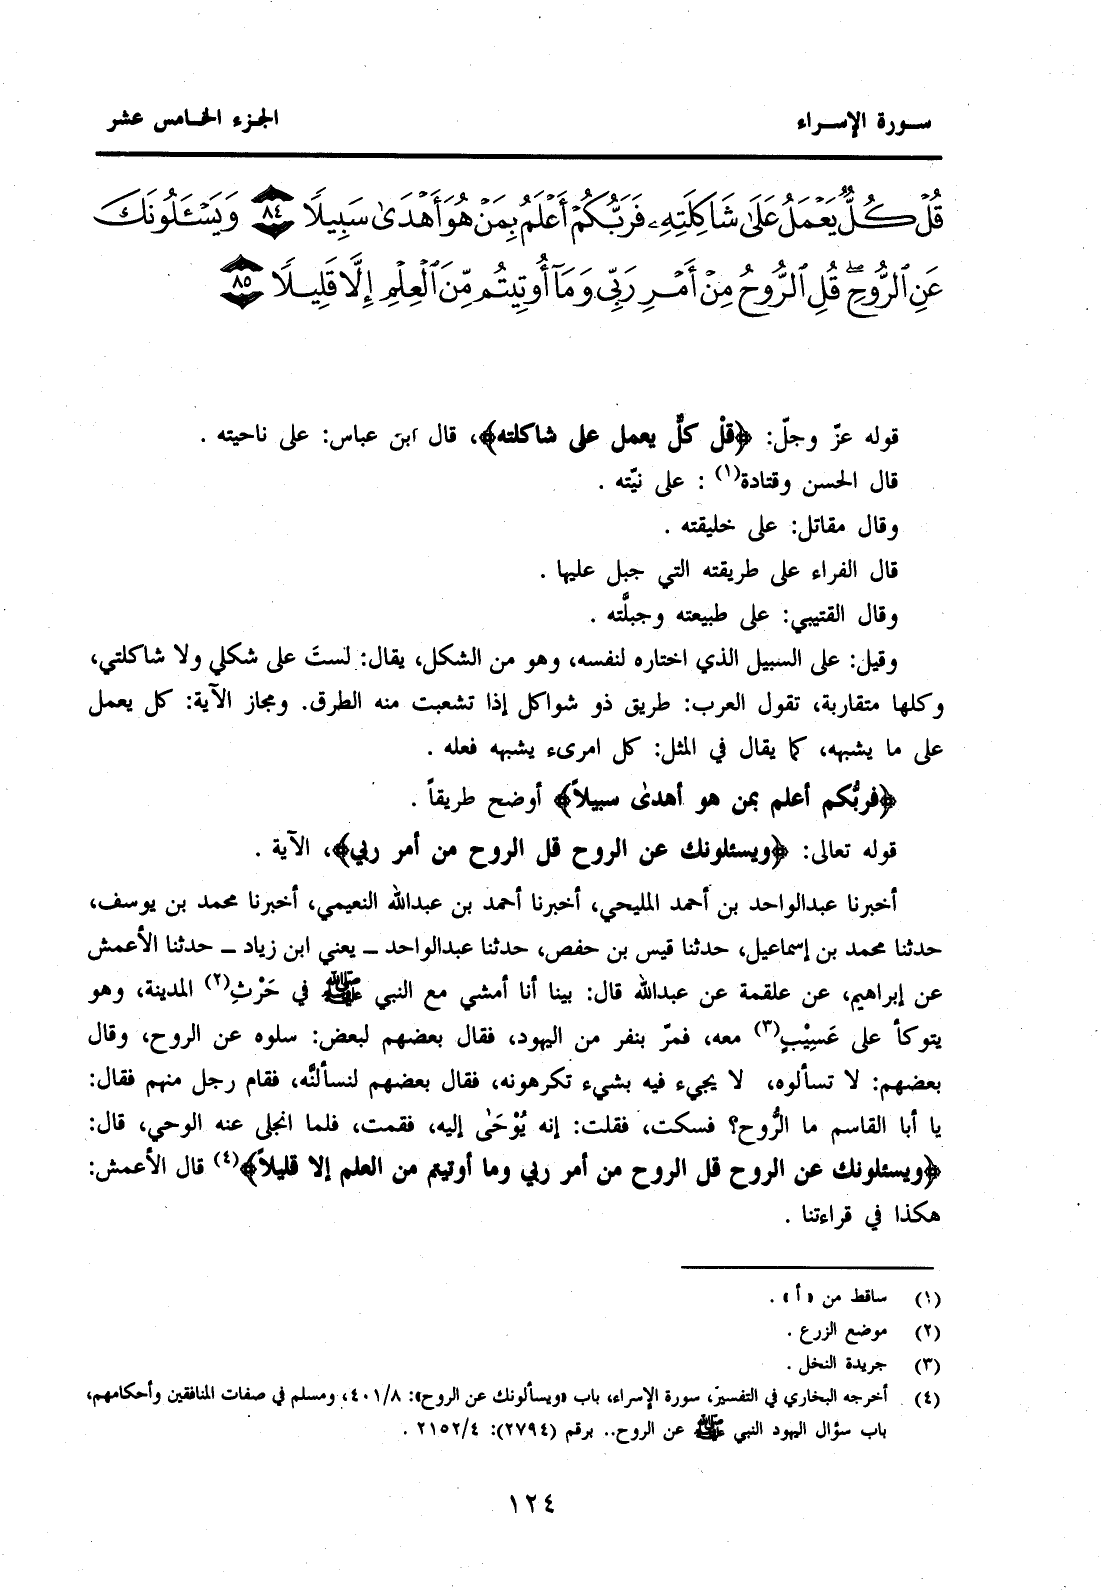 سورة الإسراء
الجزء الخامس عشر
قُلْ كُلٌّ يَعْمَلُ عَلَىٰ شَاكِلَتِهِۦ فَرَبُّكُمْ أَعْلَمُ بِمَنْ هُوَ أَهْدَىٰ سَبِيلًا ٨٤ وَيَسْـَٔلُونَكَ
عَنِ ٱلرُّوحِ ۖ قُلِ ٱلرُّوحُ مِنْ أَمْرِ رَبِّى وَمَآ أُوتِيتُم مِّنَ ٱلْعِلْمِ إِلَّا قَلِيلًا ٨٥
قوله عزّ وجلّ: ﴿قلْ كلٌّ يعمل على شاكلته﴾، قال ابن عباس: على ناحيته .
قال الحسن وقتادة(١) : على نيّته .
وقال مقاتل: على خليقته .
قال الفراء على طريقته التي جبل عليها .
وقال القتيبي: على طبيعته وجبلَّته .
وقيل: على السبيل الذي اختاره لنفسه، وهو من الشكل، يقال: لستَ على شكلي ولا شاكلتي،
وكلها متقاربة، تقول العرب: طريق ذو شواكل إذا تشعبت منه الطرق. ومجاز الآية: كل يعمل
على ما يشبهه، كما يقال في المثل: كل امرىء يشبهه فعله .
﴿فربُّكم أعلم بمن هو أهدىٰ سبيلاً﴾ أوضح طريقاً .
قوله تعالى: ﴿ويسئلونك عن الروح قل الروح من أمر ربي﴾، الآية .
أخبرنا عبدالواحد بن أحمد المليحي، أخبرنا أحمد بن عبدالله النعيمي، أخبرنا محمد بن يوسف،
حدثنا محمد بن إسماعيل، حدثنا قيس بن حفص، حدثنا عبدالواحد ــ يعني ابن زياد ــ حدثنا الأعمش
عن إبراهيم، عن علقمة عن عبدالله قال: بينا أنا أمشي مع النبي ﷺ في حَرْثِ(٢) المدينة، وهو
يتوكأ على عَسِيْبٍ(٣) معه، فمرّ بنفر من اليهود، فقال بعضهم لبعض: سلوه عن الروح، وقال
بعضهم: لا تسألوه، لا يجيء فيه بشيء تكرهونه، فقال بعضهم لنسألنَّه، فقام رجل منهم فقال:
يا أبا القاسم ما الرُّوح؟ فسكت، فقلت: إنه يُوْحَىٰ إليه، فقمت، فلما انجلى عنه الوحي، قال:
﴿ويسئلونك عن الروح قل الروح من أمر ربي وما أوتيتم من العلم إلا قليلاً﴾(٤) قال الأعمش:
هكذا في قراءتنا .
(١) ساقط من «أ» .
(٢) موضع الزرع .
(٣) جريدة النخل .
(٤) أخرجه البخاري في التفسير، سورة الإسراء، باب «ويسألونك عن الروح»: ٤٠١/٨، ومسلم في صفات المنافقين وأحكامهم،
باب سؤال اليهود النبي ﷺ عن الروح.. برقم (٢٧٩٤): ٢١٥٢/٤ .
١٢٤